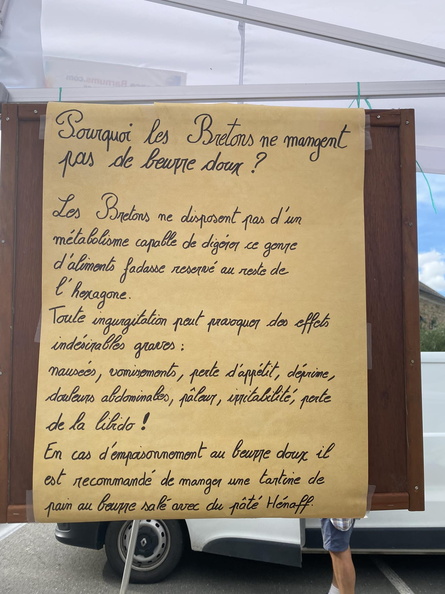 Pourquoi les Bretons ne mangent
pas de beurre doux ?
Les Bretons ne disposent pas d'un
métabolisme capable de digérer ce genre
d'aliments fadasse reservé au reste de
l'hexagone.
Toute ingurgitation peut provoquer des effets
indésirables graves :
nausées, vomissements, perte d'appétit, déprime,
douleurs abdominales, pâleur, irritabilité, perte
de la libido !
En cas d'empoisonnement au beurre doux il
est recommandé de manger une tartine de
pain au beurre salé avec du pâté Hénaff.